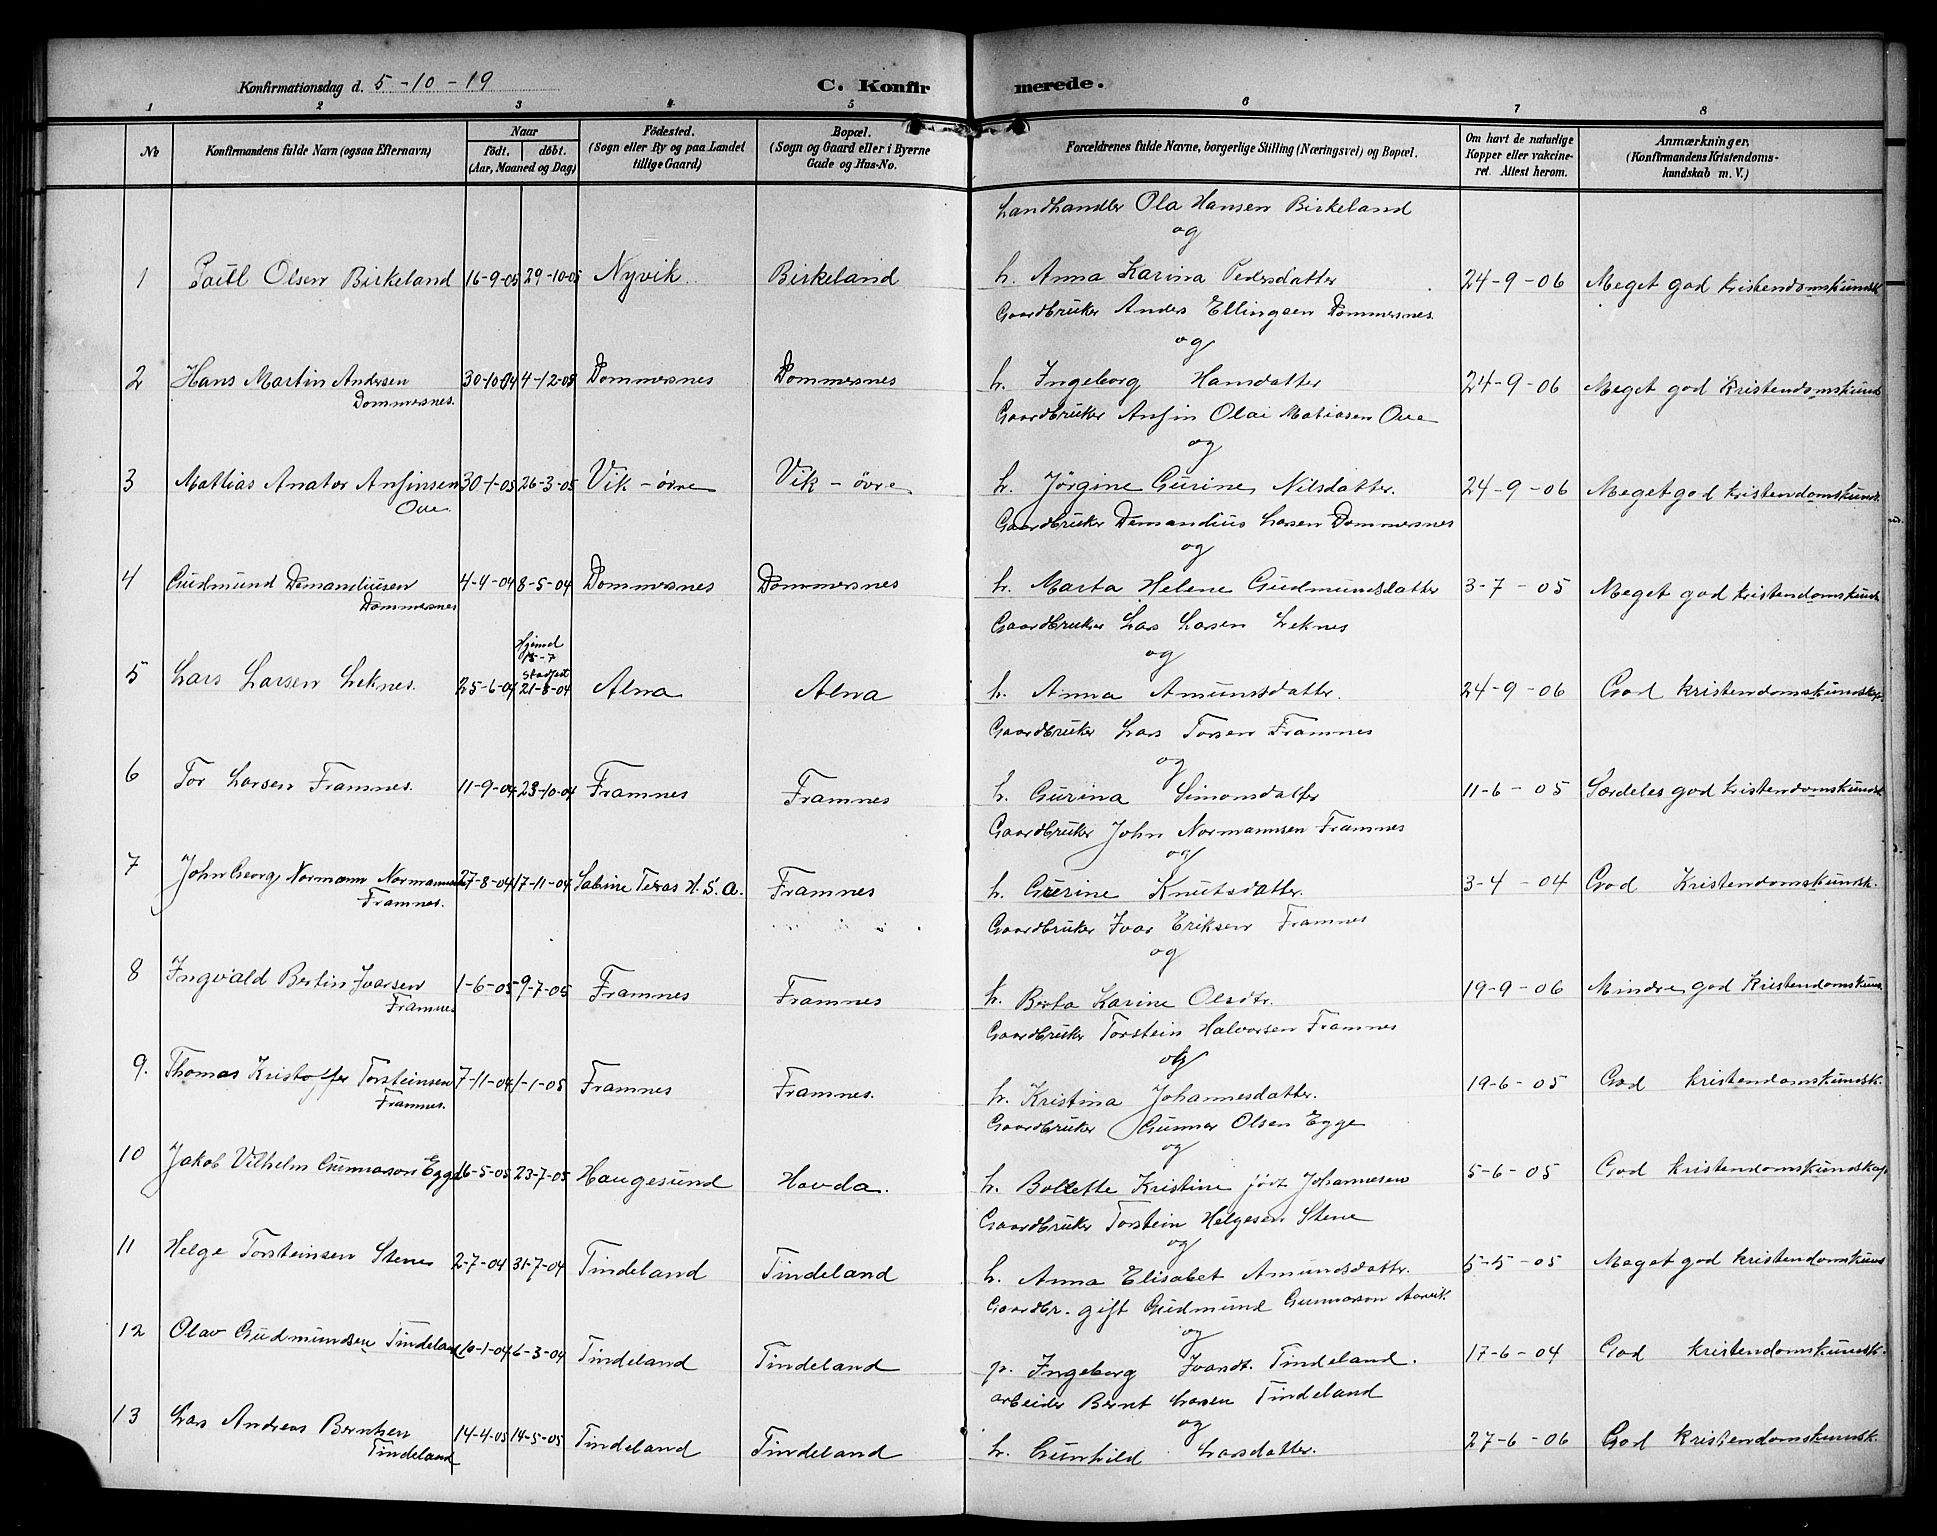 Konfirmationsdag d. 5-10-19
C. Konfirmerede.
1 2 3 4 5 6 7 8
№
Konfirmandens fulde Navn (ogsaa Efternavn)
Naar
født. døbt.
(Aar, Maaned og Dag)
Fødested.
(Sogn eller By og paa Landet
tillige Gaard)
Bopæl.
(Sogn og Gaard eller i Byerne
Gade og Hus-No.
Forældrenes fulde Navne, borgerlige Stilling (Næringsvei) og Bopæl.
Om havt de naturlige
Kopper eller vakcine-
ret. Attest herom.
Anmærkninger,
(Konfirmandens Kristendoms-
kundskab m. V.)
Landhandler Ola Hansen Birkeland
og
1 Paul Olsen Birkeland 16-9-05 29-10-05 Nyvik Birkeland h. Anna Karina Pedersdatter 24-9-06 Meget god kristendomskundsk
Gaardbruker Anders Ellingsen Dommersnes
og
2 Hans Martin Andersen 30-10-04 4-12-04 Dommersnes Dommersnes h. Ingeborg Hansdatter 24-9-06 Meget god Kristendomskund
Dommersnes.
Gaardbruker Anfin Olai Matiasen Ove
og
3 Mattias Anator Anfinsen 30-1-05 26-3-05 Vik - øvre Vik - øvre h. Jørgine Gurine Nilsdatter. 24-9-06 Meget god kristendomskunds.
Ove.
Gaardbruker Demandius Larsen Dommersnes
og
4 Gudmund Demandiusen 4-4-04 8-5-04 Dommersnes Dommersnes h. Marta Helene Gudmundsdatter 3-7-05 Meget god kristendomskunds
Dommersnes
Gaardbruker Lars Larsen Leknes
og
Hjemd
15-7
stadfest
5 Lars Larsen Leknes. 25-6-04 21-8-04 Alna Alna h. Anna Amundsdatter. 24-9-06 God kristendomskundskap.
Gaardbruker Lars Torsen Framnes
og
6 Tor Larsen Framnes. 11-9-04 23-10-04 Framnes Framnes h. Gurina Simonsdatter 11-6-05 Særdeles god kristendomskundsk
Gaardbruker John Normannsen Framnes
og
7 John Georg Normann Normannsen 27-8-04 17-11-04 Sabine Texas U.S.A. Framnes h. Gurine Knutsdatter. 3-4-04 God Kristendomskundsk.
Framnes.
Gaardbruker Ivar Eriksen Framnes
og
8 Ingvald Bertin Ivarsen 1-6-05 9-7-05 Framnes Framnes h. Berta Karine Olsdtr. 19-9-06 Mindre god Kristendomskuns
Framnes
Gaardbruker Torstein Halvorsen Framnes
og
9. Thomas Kristoffer Torsteinsen 7-11-04 1-1-05 Framnes Framnes. h. Kristina Johannesdatter. 19-6-05 God kristendomskundsk.
Framnes.
Gaardbruker Gunnar Olsen Egge
og
10 Jakob Vilhelm Gunnarson Egge 16-5-05 23-7-05 Haugesund Hovda. h. Bollette Kristine født Johannesen 5-6-05 God kristendomskundskap
Gaardbruker Torstein Helgesen Stene
og
11 Helge Torsteinsen Stene 2-7-04 31-7-04 Tindeland Tindeland h. Anna Elisabet Amundsdatter. 5-5-05 Meget god kristendomskuns
Gaardbr. gift Gudmund Gunnarson Aarvik
og
12 Olav Gudmundsen Tindeland 16-1-04 6-3-04 Tindeland Tindeland p. Ingeborg Ivarsdt. Tindeland. 17-6-04 God kristendomskundsk.
arbeider Bernt Larsen Tindeland
og
13 Lars Andreas Berntsen 14-4-05 14-5-05 Tindeland Tindeland h. Gunhild Larsdatter. 27-6-06 God kristendomskundsk.
Tindeland